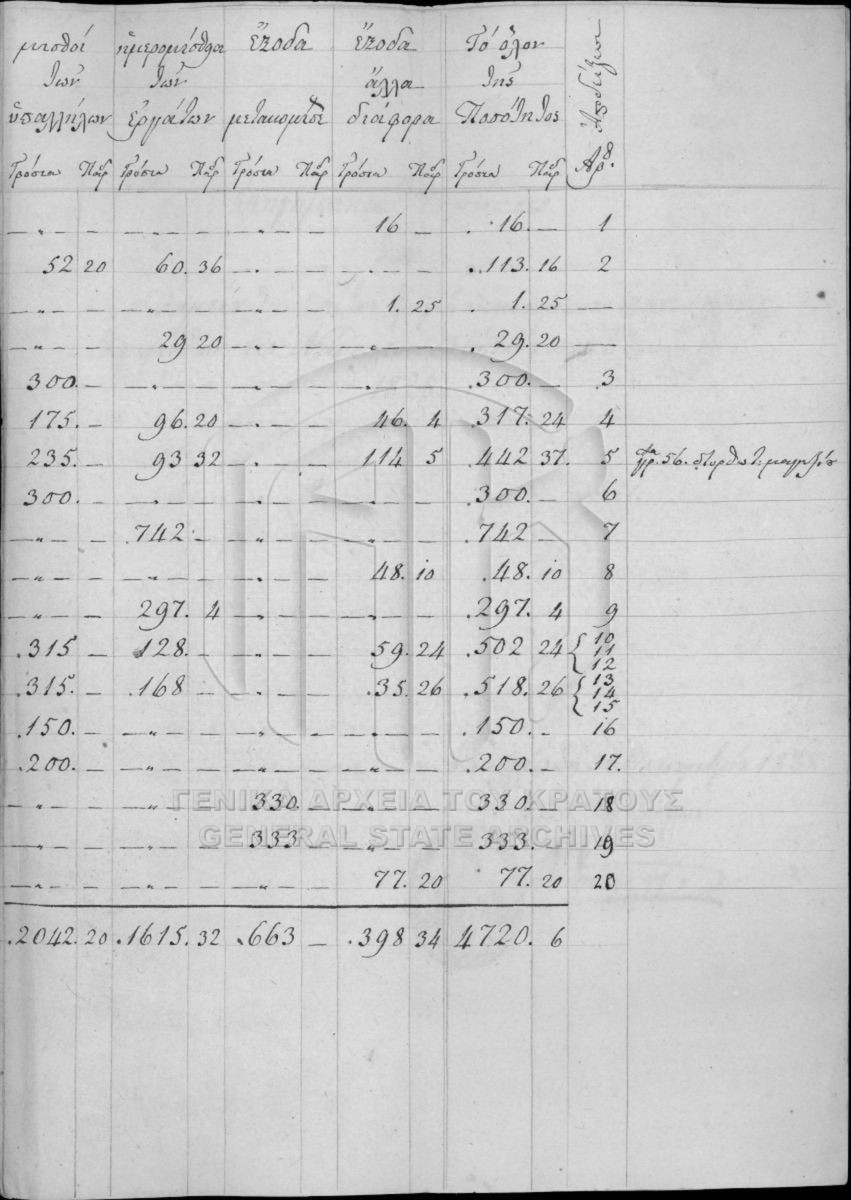 μισθοί ἡμερομίσθια Ἔξοδα Ἔξοδα Τό ὅλον
τῶν τῶν ἄλλα τῆς
ὑπαλλήλων ἐργάτων μετακομίσε διάφορα Ποσότητος Ἀποδείξεων
Γρόσια Παρ Γρόσια Παρ Γρόσια Παρ Γρόσια Παρ Γρόσια Παρ Ἀρθ.
— " — — " — — " — — 16 — . 16. — 1
52 20 60. 36 — . — — — . — — . 113. 16 2
— " — — " — — " — — 1. 25 . 1. 25 —
— " — 29 20 — . — — — " — — . 29. 20 —
300. — — " — — . — — — " — — .300. — 3
175. — 96. 20 — . — — 46. 4 .317. 24 4
235. — 93 32 — . — — 114 5 .442 37. 5
300. — — " — — . — — — " — — .300. — 6
— " — .742 — — " — — — " — — .742 — 7
— " — — " — — . — — 48. 10 .48. 10 8
— " — .297. 4 — . — — — " — — .297. 4 9
.315 — .128. — — " — — 59. 24 .502 24 { 10
11
12
.315. — .168 — — . — — .35. 26 .518. 26 { 13
14
15
.150. — — " — — " — — — " — — .150. — 16
.200. — — " — — " — — — " — — .200. — 17.
— " — — " — 330. — — " — — 330. — 18
— " — — " — 333 — — " — — 333. — 19
— " — — " — — " — — 77. 20 77. 20 20
.2042. 20 .1615. 32 .663 — .398 34 4720. 6
ΓΕΝΙΚΑ ΑΡΧΕΙΑ ΤΟΥ ΚΡΑΤΟΥΣ
GENERAL STATE ARCHIVES